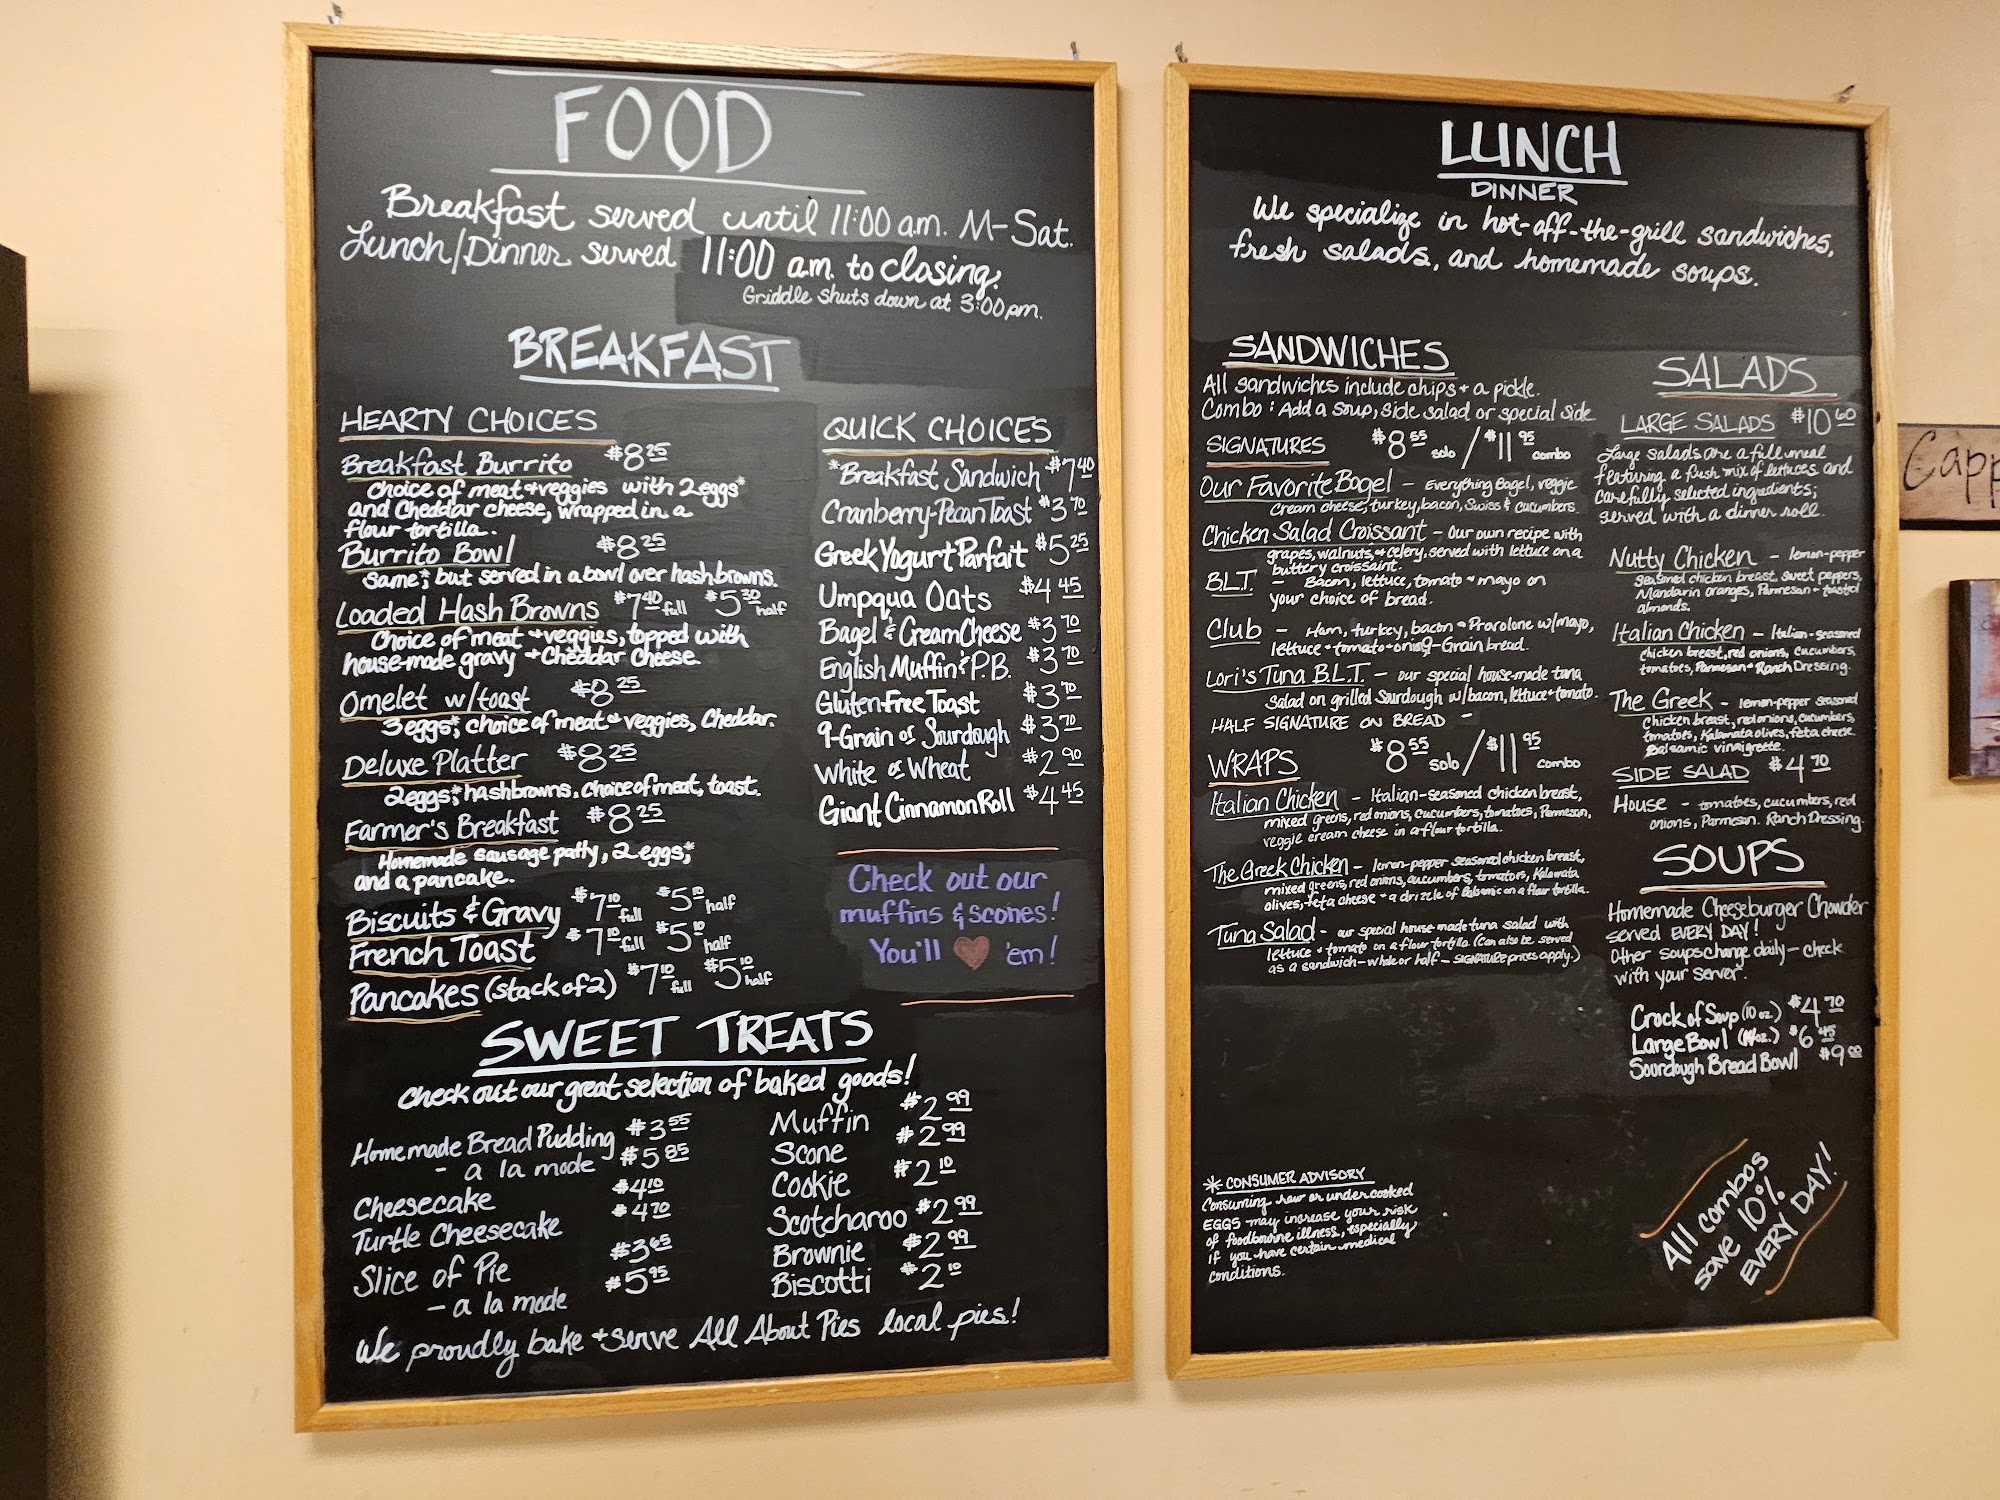 FOOD
Breakfast served until 11:00 a.m. M-Sat.
Lunch/Dinner served 11:00 a.m. to closing.
Griddle shuts down at 3:00 pm.
BREAKFAST
HEARTY CHOICES
Breakfast Burrito $8 25
choice of meat + veggies with 2 eggs*
and Cheddar cheese, wrapped in a
flour tortilla.
Burrito Bowl $8 25
same*, but served in a bowl over hashbrowns.
Loaded Hash Browns $7 40 full $5 30 half
Choice of meat + veggies, topped with
house-made gravy + Cheddar Cheese.
Omelet w/toast $8 25
3 eggs*, choice of meat + veggies, Cheddar.
Deluxe Platter $8 25
2 eggs*, hashbrowns, choice of meat, toast.
Farmer's Breakfast $8 25
Homemade sausage patty, 2 eggs,*
and a pancake.
Biscuits & Gravy $7 10 full $5 10 half
French Toast $7 10 full $5 10 half
Pancakes (stack of 2) $7 10 full $5 10 half
QUICK CHOICES
*Breakfast Sandwich $7 40
Cranberry-Pecan Toast $3 70
Greek Yogurt Parfait $5 25
Umpqua Oats $4 45
Bagel & Cream Cheese $3 70
English Muffin & P.B. $3 70
Gluten-Free Toast $3 70
9-Grain or Sourdough $3 70
White or Wheat $2 90
Giant Cinnamon Roll $4 45
Check out our
muffins & scones!
You'll 'em!
SWEET TREATS
Check out our great selection of baked goods!
Homemade Bread Pudding $3 55
- a la mode $5 85
Cheesecake $4 10
Turtle Cheesecake $4 70
Slice of Pie $3 65
- a la mode $5 95
Muffin $2 99
Scone $2 99
Cookie $2 10
Scotcharoo $2 99
Brownie $2 99
Biscotti $2 10
We proudly bake + serve All About Pies local pies!
LUNCH
DINNER
We specialize in hot-off-the-grill sandwiches,
fresh salads, and homemade soups.
SANDWICHES
All sandwiches include chips + a pickle.
Combo: Add a soup, side salad or special side.
SIGNATURES $8 55 solo / $11 95 combo
Our Favorite Bagel - Everything Bagel, veggie
cream cheese, turkey, bacon, Swiss & cucumbers.
Chicken Salad Croissant - Our own recipe with
grapes, walnuts, + celery, served with lettuce on a
buttery croissant.
B.L.T. - Bacon, lettuce, tomato + mayo on
your choice of bread.
Club - Ham, turkey, bacon + Provolone w/mayo,
lettuce + tomato on 9-Grain bread.
Lori's Tuna B.L.T. - our special house-made tuna
salad on grilled Sourdough w/bacon, lettuce + tomato.
HALF SIGNATURE ON BREAD -
WRAPS $8 55 solo / $11 95 combo
Italian Chicken - Italian-seasoned chicken breast,
mixed greens, red onions, cucumbers, tomatoes, Parmesan,
veggie cream cheese in a flour tortilla.
The Greek Chicken - lemon-pepper seasoned chicken breast,
mixed greens, red onions, cucumbers, tomatoes, Kalamata
olives, feta cheese + a drizzle of Balsamic on a flour tortilla.
Tuna Salad - our special house made tuna salad with
lettuce + tomato on a flour tortilla (Can also be served
as a sandwich - whole or half - SIGNATURE prices apply.)
* CONSUMER ADVISORY
Consuming raw or undercooked
EGGS may increase your risk
of foodbourne illness, especially
if you have certain medical
conditions.
SALADS
LARGE SALADS $10 60
Large salads are a full meal
featuring a fresh mix of lettuces and
carefully selected ingredients;
served with a dinner roll.
Nutty Chicken - lemon-pepper
seasoned chicken breast, sweet peppers,
Mandarin oranges, Parmesan + toasted
almonds.
Italian Chicken - Italian-seasoned
chicken breast, red onions, cucumbers,
tomatoes, Parmesan + Ranch Dressing.
The Greek - lemon-pepper seasoned
chicken breast, red onions, cucumbers,
tomatoes, Kalamata olives, feta cheese.
Balsamic vinaigrette.
SIDE SALAD $4 70
House - tomatoes, cucumbers, red
onions, Parmesan. Ranch Dressing.
SOUPS
Homemade Cheeseburger Chowder
served EVERY DAY!
Other soups change daily - check
with your server.
Crock of Soup (10 oz.) $4 70
Large Bowl $6 45
Sourdough Bread Bowl $9 00
All combos
save 10%
EVERY DAY!
Capp